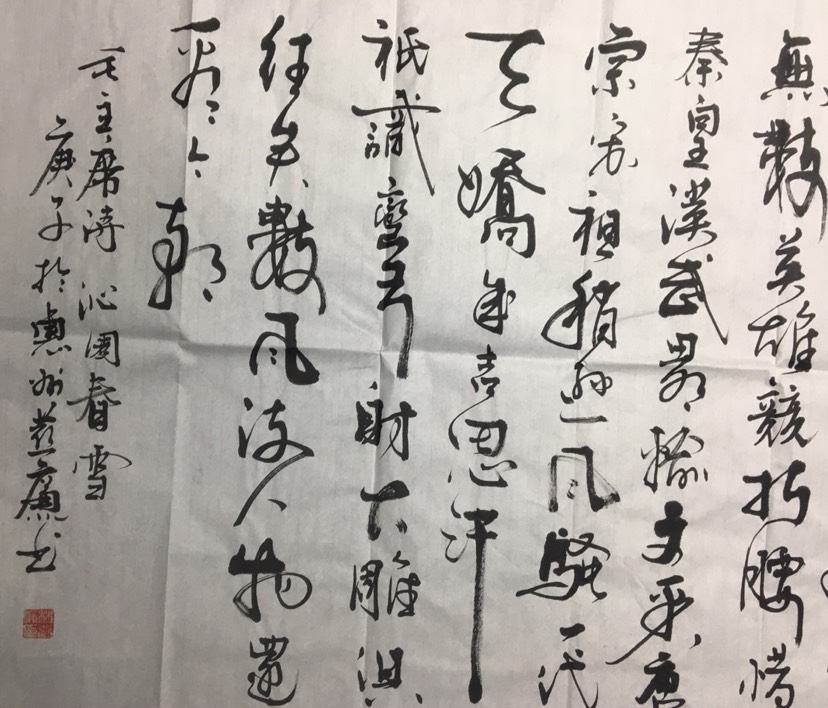 無數英雄競折腰惜
秦皇漢武略輸文采唐
宗宋祖稍遜風騷一代
天驕成吉思汗
祇識彎弓射大雕俱
往矣數風流人物還
看今朝
毛主席詩 沁園春雪
庚子於惠州書